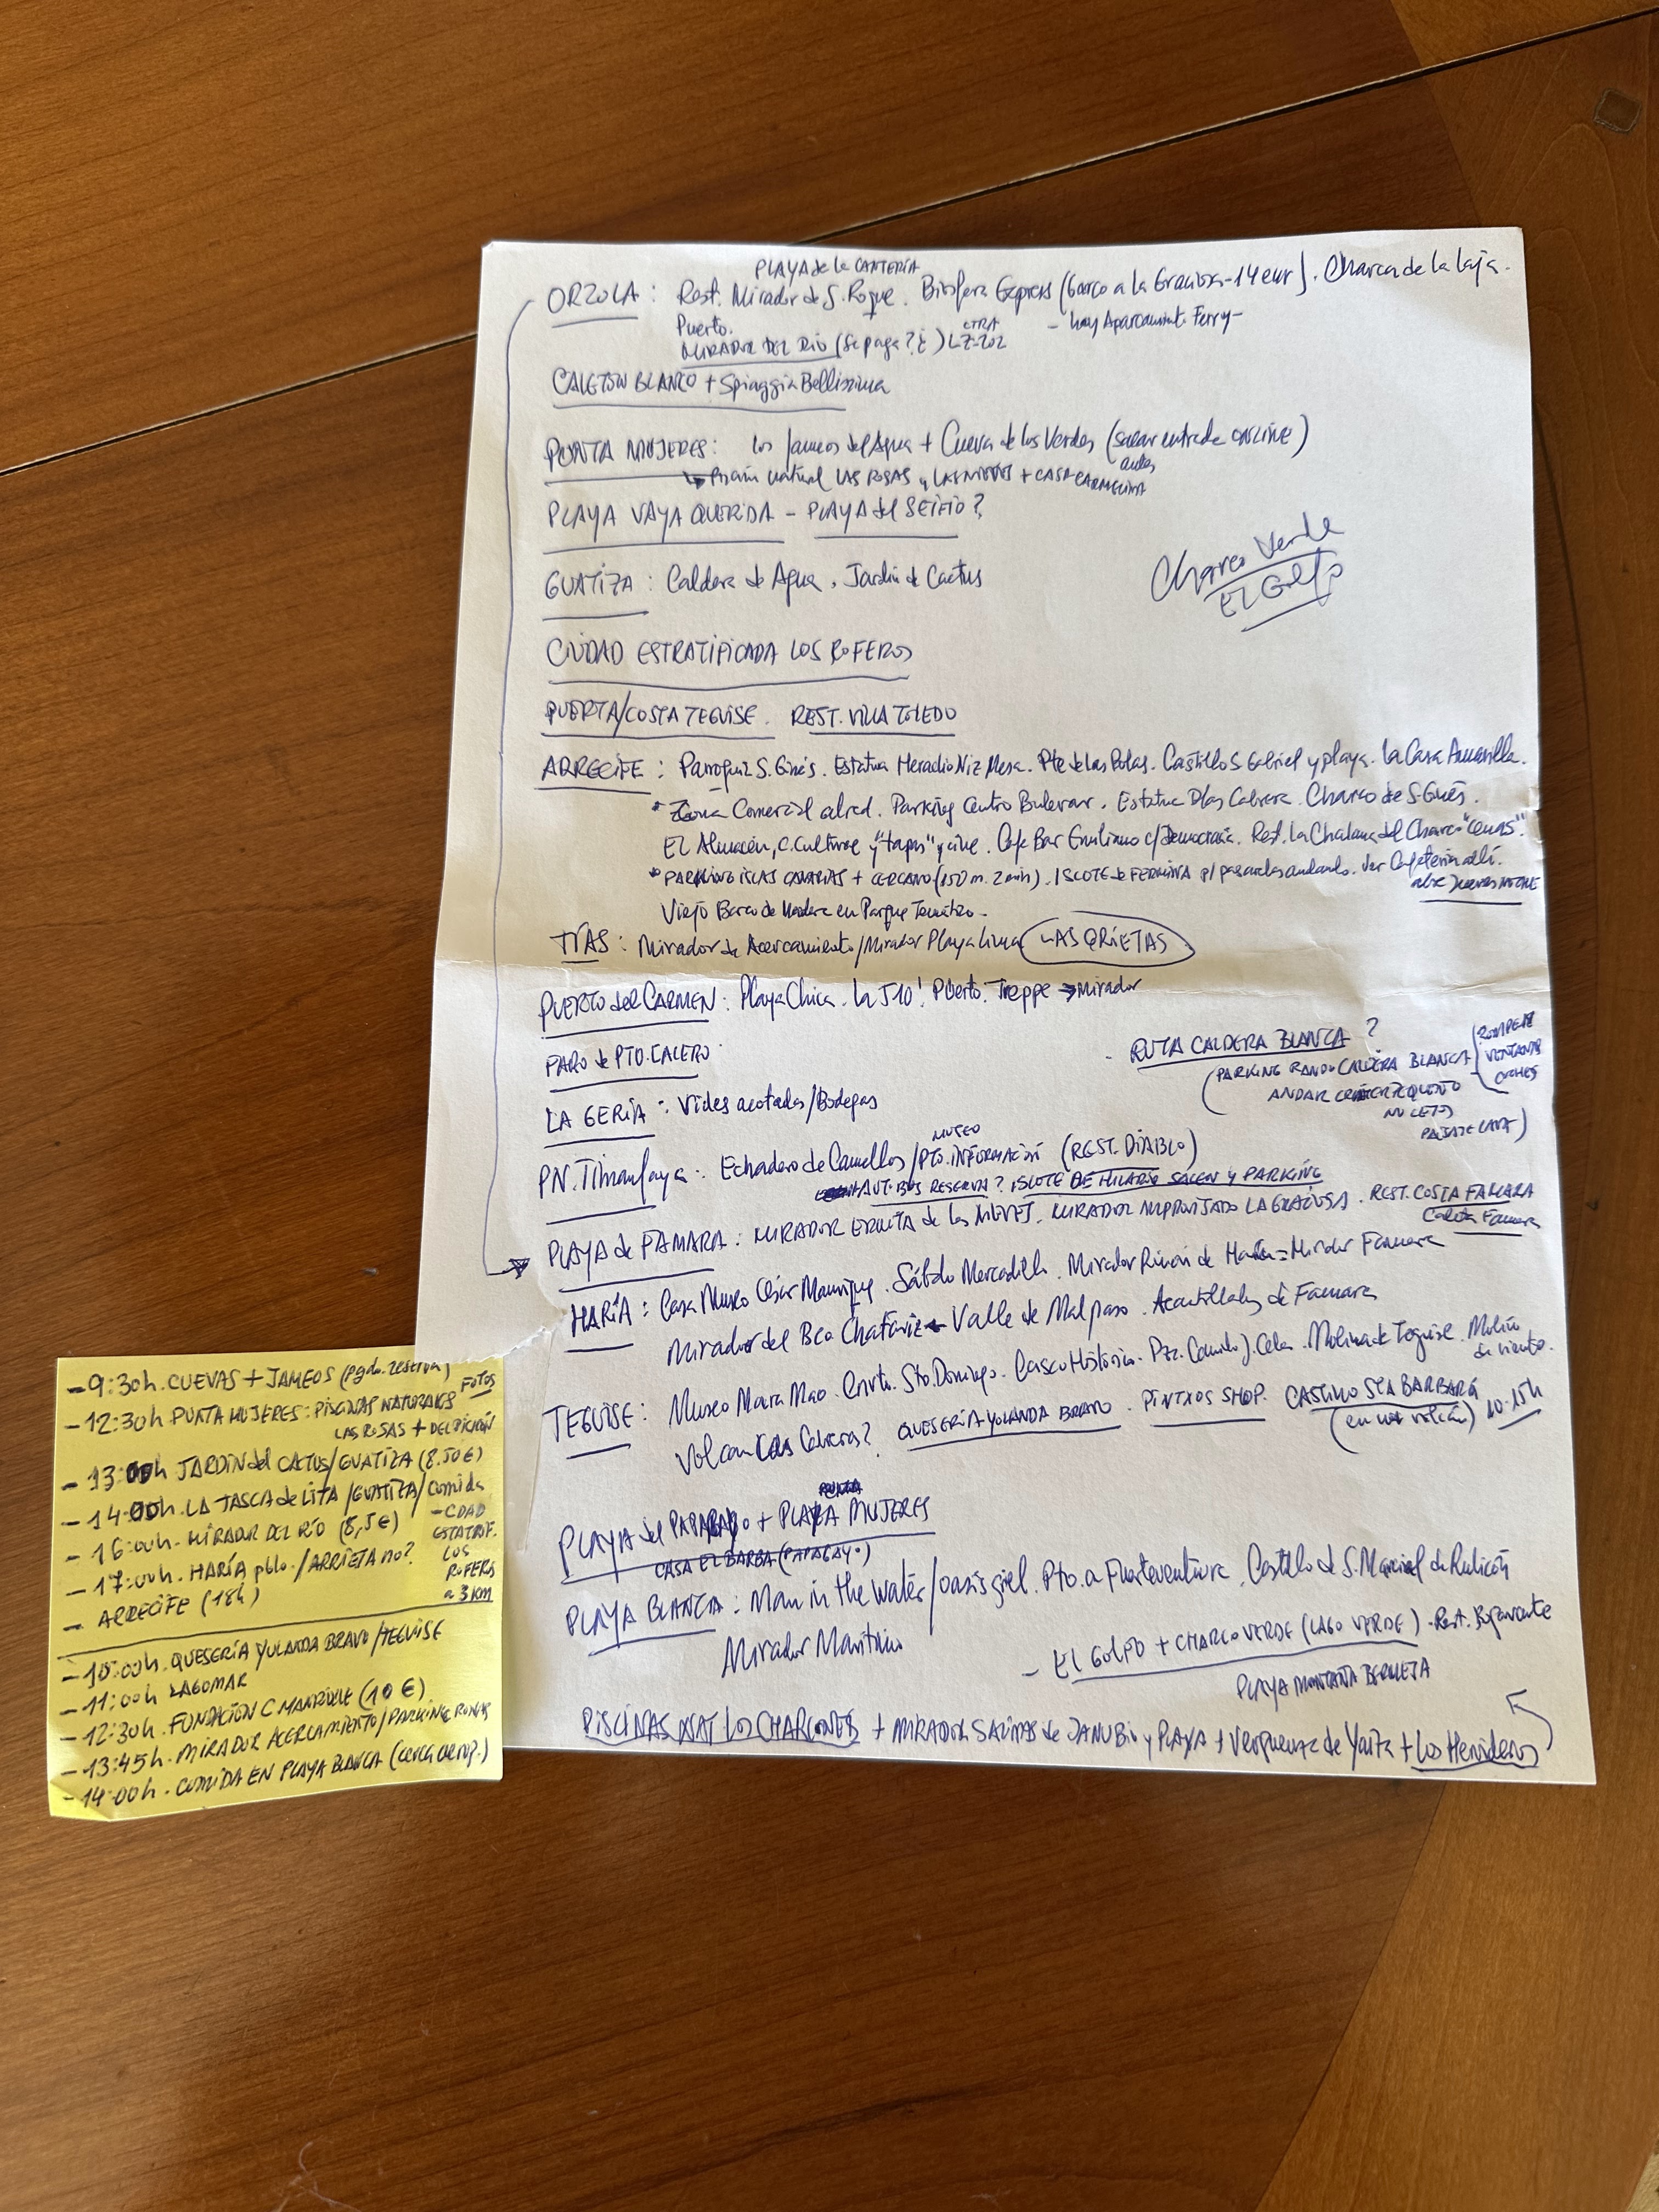 PLAYA de la CANTERIA
ORZOLA: Rest. Mirador de S. Roque. Biosfera Express (barco a la Graciosa-14 eur). Charca de la Laja.
Puerto. - hay Aparcamient. Ferry-
MIRADOR DEL RIO (Se paga?¿) CTRA LZ-202
CALETON BLANCO + Spiaggia Bellissima
PUNTA MUJERES: Los Jameos del Agua + Cueva de los Verdes (sacar entrada ONLINE)
antes
Piscina natural LAS ROSAS y + CASA CARMELINA
PLAYA VAYA QUERIDA - PLAYA del SEIFIO?
Charco Verde
EL Golfo
GUATIZA: Caldera de Agua. Jardin de Cactus
CIUDAD ESTRATIFICADA LOS ROFEROS
PUERTA/COSTA TEGUISE. REST. VILLA TOLEDO
ARRECIFE: Parroquia S. Ginés. Estatua Heraclio Niz Mesa. Pte de las Bolas. Castillo S Gabriel y playa. La Casa Amarilla.
* Zona Comercial alred. Parking Centro Bulevar. Estatua Blas Cabrera. Charco de S. Ginés.
El Almacén, C. Cultural y "tapas" y cine. Cafe Bar Emiliano c/Democracia. Rest. La Chalana del Charco "cenas".
* PARKING ISLAS CANARIAS + CERCANO (150 m. 2 min). ISLOTE de FERMINA p/ pasarelas andando. Ver Cafetería allí.
abre Jueves NOCHE
Viejo Barco de Madera en Parque Temático-
TIAS: Mirador de Acercamiento/Mirador Playa Lima LAS GRIETAS
PUERTO del CARMEN: Playa Chica. La J10! Puerto. Treppe → Mirador
FARO de PTO. CALERO.
RUTA CALDERA BLANCA?
(PARKING RANDO CALDERA BLANCA (ROMPEN VENTANAS COCHES
ANDAR
NO LEJOS
PAISAJE LAVA)
LA GERIA: Vides acotadas/Bodegas
MUSEO
PN. Timanfaya: Echadero de Camellos/PTO. INFORMACIÓN (REST. DIABLO)
AUT. BUS RESERVA? ISLOTE DE HILARIO SALEN Y PARKING
PLAYA de FAMARA: MIRADOR ERMITA de las NIEVES. MIRADOR IMPROVISADO LA GRACIOSA. REST. COSTA FAMARA
Caleta Famara
HARÍA: Casa Museo César Manrique. Sábado Mercadillo. Mirador Rincón de Haría = Mirador Famara
Mirador del Bco Chafariz - Valle de Malpaso. Acantilados de Famara
TEGUISE: Museo Mara Mao. Cnvto. Sto. Domingo. Casco Histórico. Pza. Camilo J. Cela. Molina de Teguise. Molino de viento.
Volcan Las Cabras? QUESERÍA YOLANDA BRAVO. PINTXOS SHOP. CASTILLO STA BARBARA
(en un volcán) 10-15h
PLAYA del PAPAGAYO + PLAYA MUJERES
CASA EL BARBA (PAPAGAYO)
PLAYA BLANCA: Man in the Water/oasis giel. Pto. a Fuerteventura. Castillo de S. Marcial de Rubicón
Mirador Marítimo
- EL GOLFO + CHARCO VERDE (LAGO VERDE). Rest. Bogavante
PLAYA MONTAÑA BERMEJA
PISCINAS NAT LOS CHARCONES + MIRADOR SALINAS de JANUBIO y PLAYA + Verguenza de Yaiza + Los Hervideros
- 9:30h. CUEVAS + JAMEOS (pgdo. reserva)
- 12:30h PUNTA MUJERES: PISCINAS NATURALES FOTOS
LAS ROSAS + DEL PICHÓN
- 13:00h JARDIN del CACTUS/GUATIZA (8.50€)
- 14:00h. LA TASCA de LITA/GUATIZA/Comida
- 16:00h. MIRADOR DEL RÍO (8,5€)
- 17:00h. HARÍA pblo./ARRIETA no?
- ARRECIFE (18h)
- CDAD
ESTATRIF.
LOS
ROFEROS
a 3 KM
- 10:00h. QUESERÍA YOLANDA BRAVO/TEGUISE
- 11:00h LAGOMAR
- 12:30h. FUNDACIÓN C MANRIQUE (10€)
- 13:45h. MIRADOR ACERCAMIENTO/PARKING
- 14:00h. COMIDA EN PLAYA BLANCA (cerca aerop.)